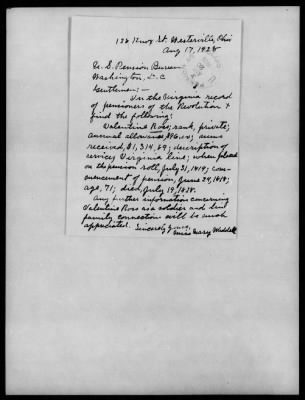 122 Knox St. Westerville, Ohio
Aug 17, 1928
U. S. Pension Bureau
Washington, D.C.
Gentlemen:—
In the Virginia record
of pensioners of the Revolution I
find the following:
Valentine Ross, rank, private;
annual allowance, $96.00; sums
received, $1,314.89; description of
service, Virginia line; when placed
on the pension roll, July 31, 1819; com-
mencement of pension, June 29, 1819;
age, 71; died, July 19, 1828.
Any further information concerning
Valentine Ross as a soldier and his
family connection will be much
appreciated. Sincerely yours,
Miss Mary Weddell